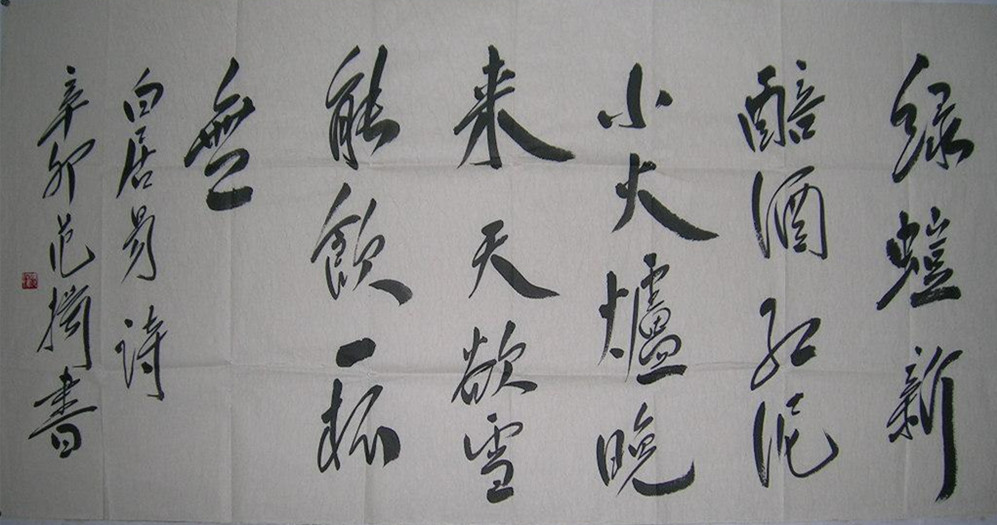 綠螘新
醅酒红泥
小火爐晚
来天欲雪
能飲一杯
無
白居易詩
辛卯范書